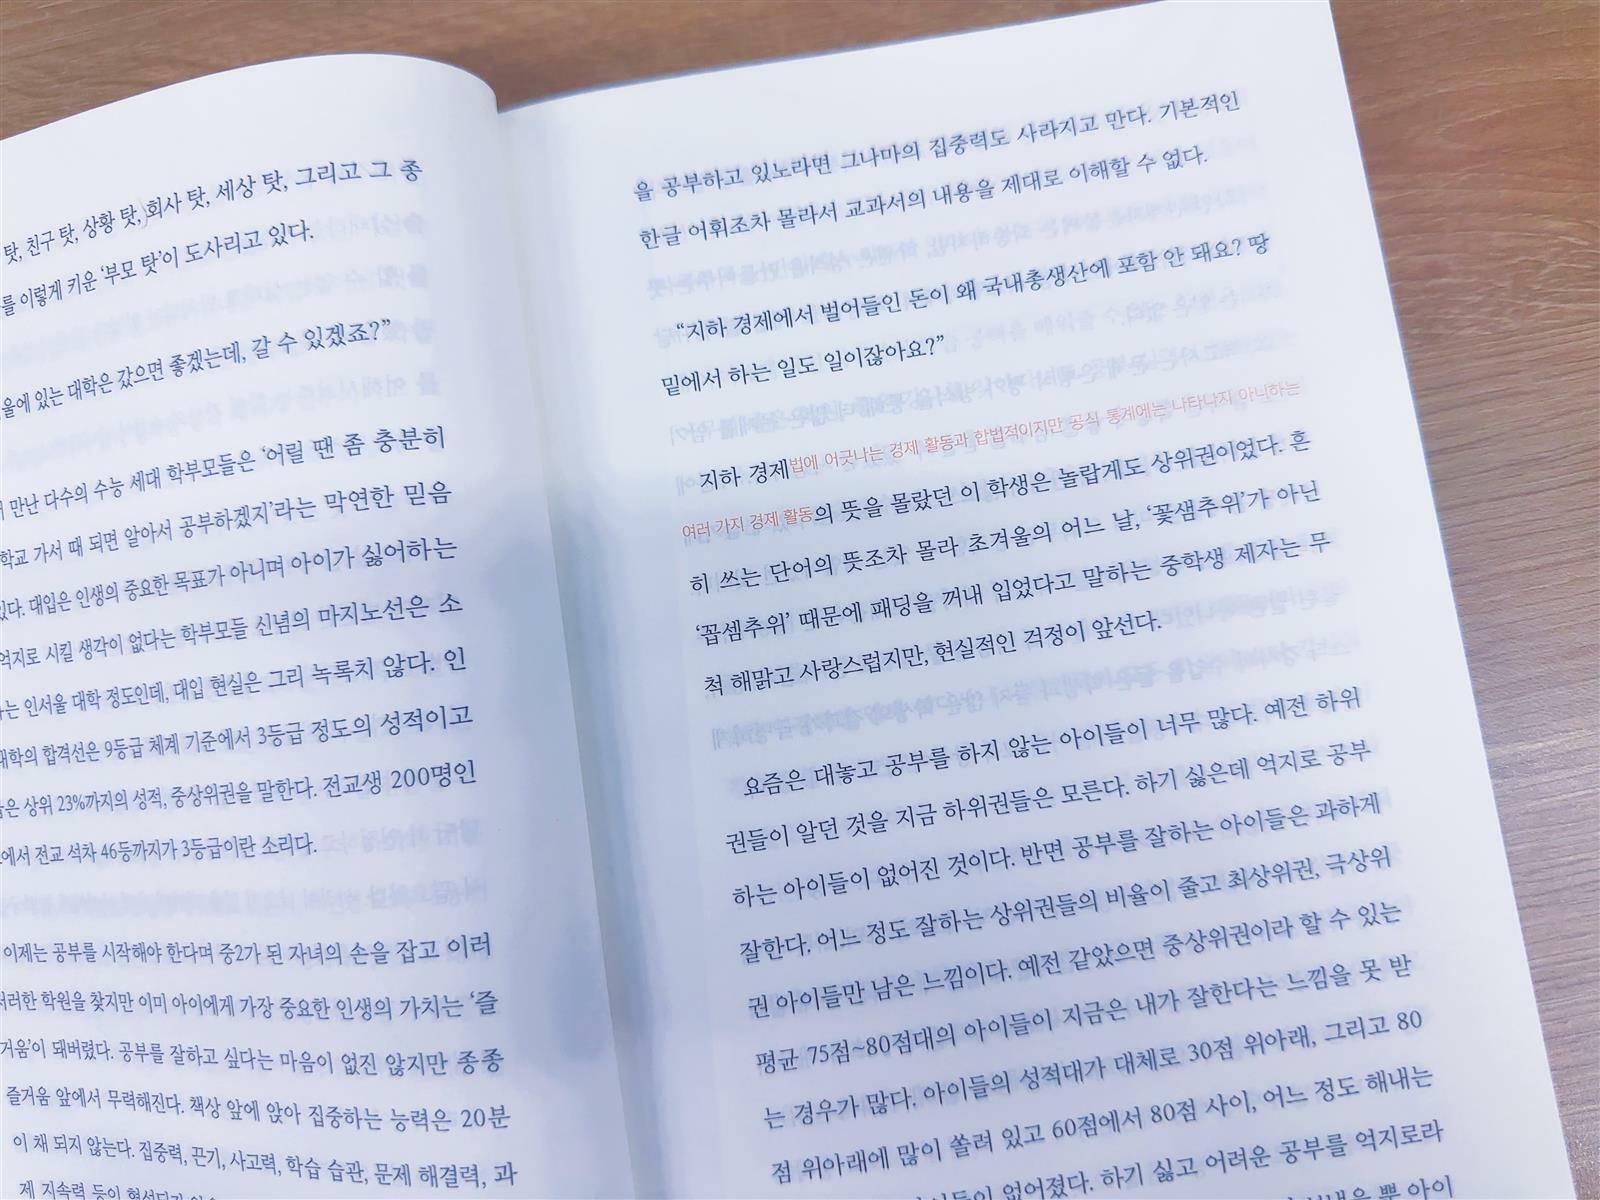 탓, 친구 탓, 상황 탓, 회사 탓, 세상 탓, 그리고 그 종
를 이렇게 키운 ‘부모 탓’이 도사리고 있다.
울에 있는 대학은 갔으면 좋겠는데, 갈 수 있겠죠?”
만난 다수의 수능 세대 학부모들은 ‘어릴 땐 좀 충분히
학교 가서 때 되면 알아서 공부하겠지’라는 막연한 믿음
있다. 대입은 인생의 중요한 목표가 아니며 아이가 싫어하는
억지로 시킬 생각이 없다는 학부모들 신념의 마지노선은 소
는 인서울 대학 정도인데, 대입 현실은 그리 녹록치 않다. 인
대학의 합격선은 9등급 체계 기준에서 3등급 정도의 성적이고
은 상위 23%까지의 성적, 중상위권을 말한다. 전교생 200명인
에서 전교 석차 46등까지가 3등급이란 소리다.
이제는 공부를 시작해야 한다며 중2가 된 자녀의 손을 잡고 이러
저러한 학원을 찾지만 이미 아이에게 가장 중요한 인생의 가치는 ‘즐
거움’이 돼버렸다. 공부를 잘하고 싶다는 마음이 없진 않지만 종종
즐거움 앞에서 무력해진다. 책상 앞에 앉아 집중하는 능력은 20분
이 채 되지 않는다. 집중력, 끈기, 사고력, 학습 습관, 문제 해결력, 과
제 지속력 등이
을 공부하고 있노라면 그나마의 집중력도 사라지고 만다. 기본적인
한글 어휘조차 몰라서 교과서의 내용을 제대로 이해할 수 없다.
“지하 경제에서 벌어들인 돈이 왜 국내총생산에 포함 안 돼요? 땅
밑에서 하는 일도 일이잖아요?”
지하 경제법에 어긋나는 경제 활동과 합법적이지만 공식 통계에는 나타나지 아니하는
여러 가지 경제 활동의 뜻을 몰랐던 이 학생은 놀랍게도 상위권이었다. 흔
히 쓰는 단어의 뜻조차 몰라 초겨울의 어느 날, ‘꽃샘추위’가 아닌
‘꼽셈추위’ 때문에 패딩을 꺼내 입었다고 말하는 중학생 제자는 무
척 해맑고 사랑스럽지만, 현실적인 걱정이 앞선다.
요즘은 대놓고 공부를 하지 않는 아이들이 너무 많다. 예전 하위
권들이 알던 것을 지금 하위권들은 모른다. 하기 싫은데 억지로 공부
하는 아이들이 없어진 것이다. 반면 공부를 잘하는 아이들은 과하게
잘한다. 어느 정도 잘하는 상위권들의 비율이 줄고 최상위권, 극상위
권 아이들만 남은 느낌이다. 예전 같았으면 중상위권이라 할 수 있는
평균 75점~80점대의 아이들이 지금은 내가 잘한다는 느낌을 못 받
는 경우가 많다. 아이들의 성적대가 대체로 30점 위아래, 그리고 80
점 위아래에 많이 쏠려 있고 60점에서 80점 사이, 어느 정도 해내는
없어졌다. 하기 싫고 어려운 공부를 억지로라
뿐 아이